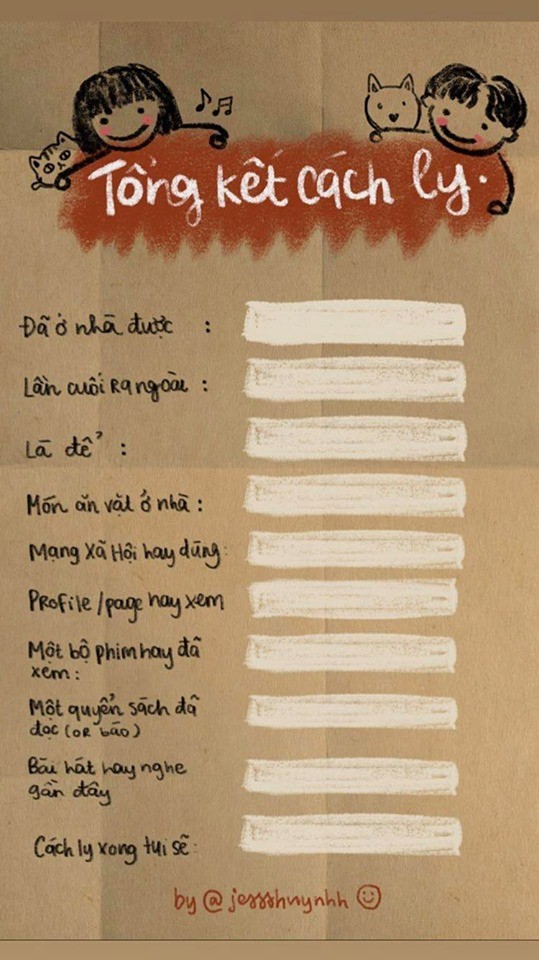 Tổng kết cách ly.
Đã ở nhà được :
Lần cuối ra ngoài :
Là để :
Món ăn vặt ở nhà :
Mạng Xã Hội hay dùng :
Profile/page hay xem
Một bộ phim hay đã
xem :
Một quyển sách đã
đọc (OR báo)
Bài hát hay nghe
gần đây
Cách ly xong tui sẽ :
by @jessshuynhh